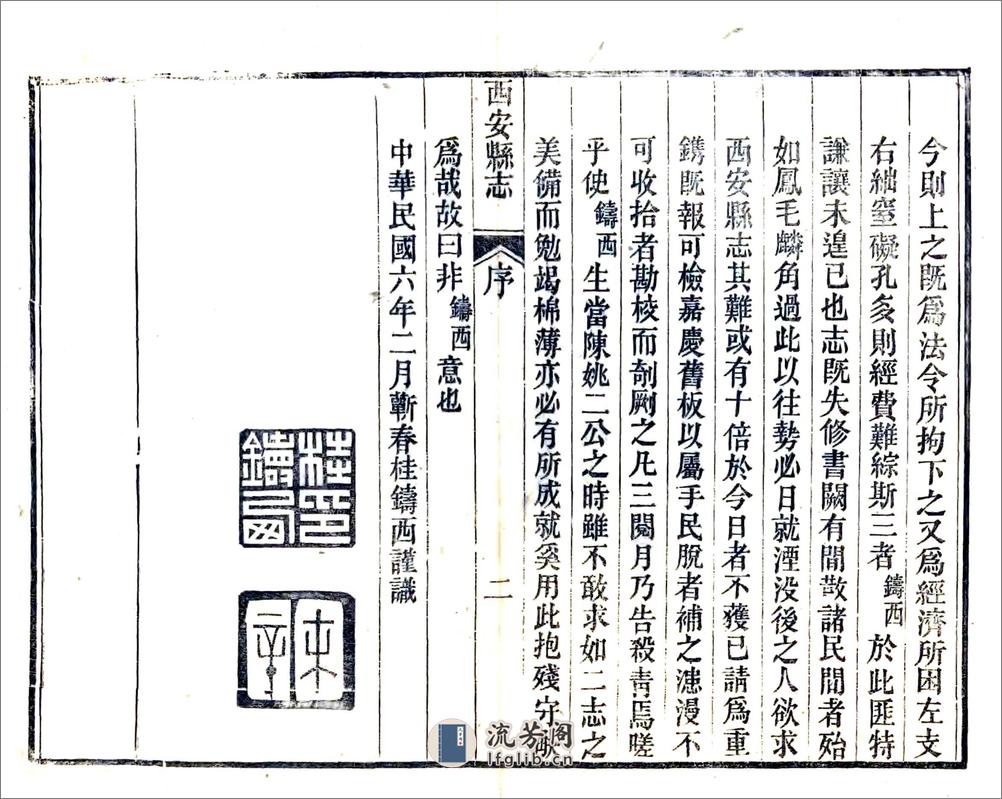 今則上之旣爲法令所拘下之又爲經濟所困左支
右絀窒礙孔多則經費難綜斯三者鑄西於此匪特
謙讓未遑已也志旣失修書闕有間散諸民間者殆
如鳳毛麟角過此以往勢必日就湮没後之人欲求
西安縣志其難或有十倍於今日者不獲已請爲重
鐫旣報可檢嘉慶舊板以屬手民脫者補之漶漫不
可收拾者勘校而剞劂之凡三閱月乃告殺靑焉嗟
乎使鑄西生當陳姚二公之時雖不敢求如二志之
美備而勉竭棉薄亦必有所成就奚用此抱殘守
西安縣志
序
二
爲哉故曰非鑄西意也
中華民國六年二月蘄春桂鑄西謹識
桂印
鑄西
流芳阁
lfglib.cn